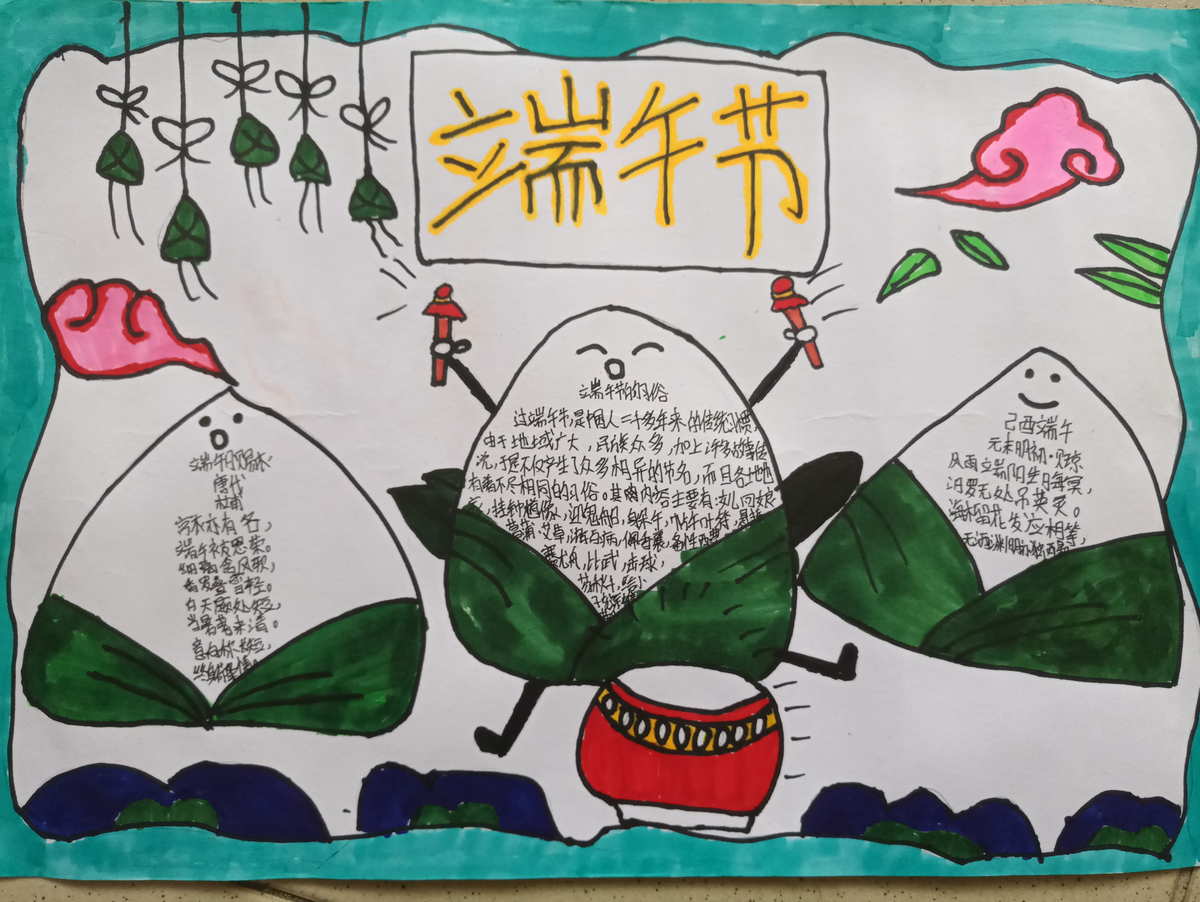 端午节
端午日赐衣
唐代
杜甫
宫衣亦有名,
端午被恩荣。
细葛含风软,
香罗叠雪轻。
自天题处湿,
当暑著来清。
意内称长短,
终身荷圣情。
端午节的习俗
过端午节,是中国人二千多年来的传统习惯,
由于地域广大,民族众多,加上许多故事传
说,于是不仅产生了众多相异的节名,而且各地也
有着不尽相同的习俗。其内容主要有:女儿回娘
家,挂钟馗像,迎鬼船,躲午,帖午叶符,悬挂
菖蒲,艾草,游百病,佩香囊,备牲醴,
赛龙舟,比武,击球,
荡秋千,给小
己酉端午
元末明初·贝琼
风雨端阳生晦冥,
汨罗无处吊英灵。
海榴花发应相笑,
无酒渊明亦独醒